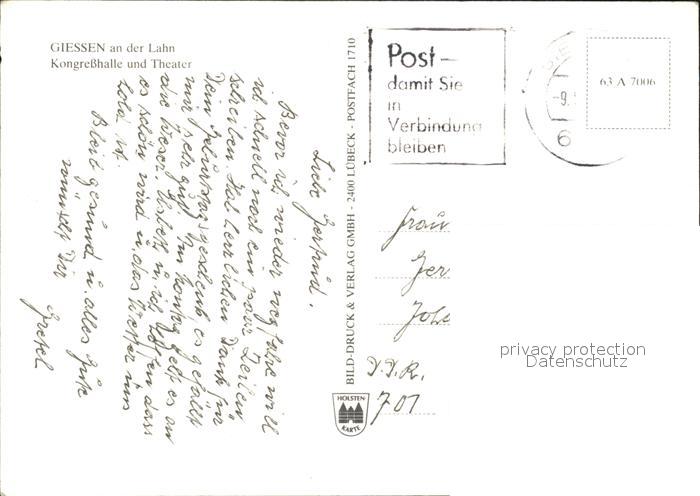 GIESSEN an der Lahn
Kongreßhalle und Theater
Liebe Gertrud.
Bevor ich wieder wegfahre will
ich schnell noch ein paar Zeilen
schreiben. Hab herzlichen Dank für
Dein Geburtstagsgeschenk es gefällt
mir sehr gut. Im geht es an
die Weser. Ursbett u. ich hoffen dass
es schön wird u. das Wetter uns
hold ist.
Bleib gesund u. alles Gute
wünscht Dir
Gretel
BILD-DRUCK & VERLAG GMBH - 2400 LÜBECK - POSTFACH 1710
Post –
damit Sie
in
Verbindung
bleiben
-9.
6
63 A 7006
Frau
Ger
Joh
D.D.R.
701
HOLSTEN
KARTE
privacy protection
Datenschutz